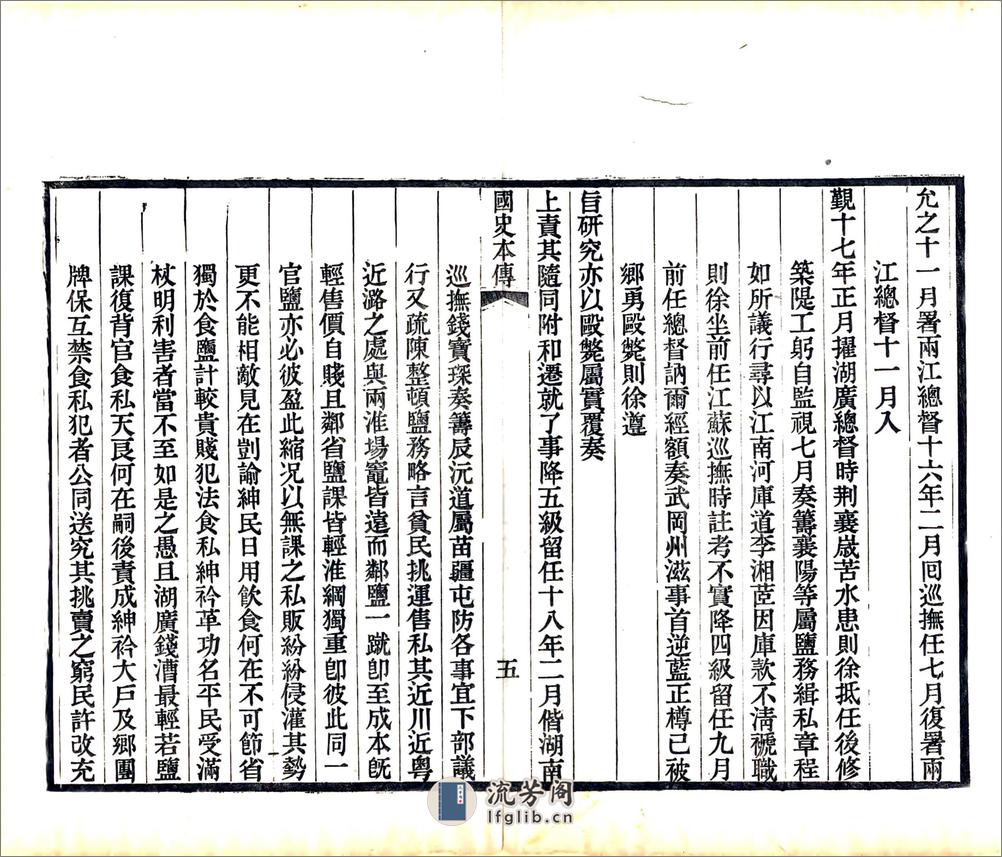 允之十一月署兩江總督十六年二月囘巡撫任七月復署兩
江總督十一月入
覲十七年正月擢湖廣總督時荆襄嵗苦水患則徐抵任後修
築隄工躬自監視七月奏籌襄陽等屬鹽務緝私章程
如所議行尋以江南河庫道李湘茝因庫款不淸褫職
則徐坐前任江蘇巡撫時註考不實降四級留任九月
前任總督訥爾經額奏武岡州滋事首逆藍正樽已被
鄉勇毆斃則徐遵
旨硏究亦以毆斃屬實覆奏
上責其隨同附和遷就了事降五級留任十八年二月偕湖南
國史本傳
五
巡撫錢寶琛奏籌辰沅道屬苗疆屯防各事宜下部議
行又疏陳整頓鹽務略言貧民挑運售私其近川近粵
近潞之處與兩淮場竈皆遠而鄰鹽一蹴卽至成本旣
輕售價自賤且鄰省鹽課皆輕淮綱獨重卽彼此同一
官鹽亦必彼盈此縮况以無課之私販紛紛侵灌其勢
更不能相敵見在剴諭紳民日用飮食何在不可節省
獨於食鹽計較貴賤犯法食私紳衿革功名平民受滿
杖明利害者當不至如是之愚且湖廣錢漕最輕若鹽
課復背官食私天良何在嗣後責成紳衿大戶及鄉團
牌保互禁食私犯者公同送究其挑賣之窮民許改充
流芳阁
lfglib.cn